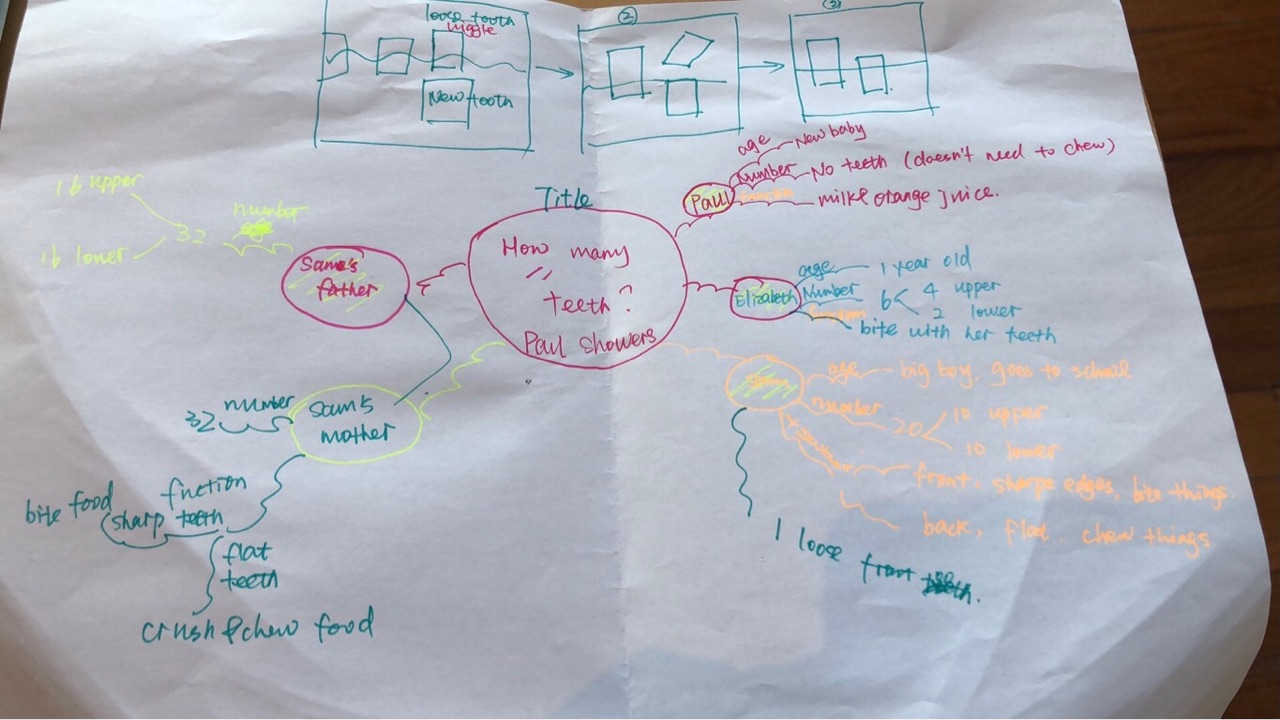 loose tooth
wiggle
New tooth
②
③
Title
How many
teeth?
Paul showers
Paul
age
New baby
Number
No teeth (doesn't need to chew)
milke orange juice.
Elizabeth
age
1 year old
Number
6
4 upper
2 lower
bite with her teeth
age
big boy, goes to school
number
20
10 upper
10 lower
front. sharpe edges, bite things.
back, flat. chew things
1 loose front
Sam's
mother
number
32
fnction
sharp teeth
bite food
flat
teeth
crush & chew food
Same's
father
number
age
32
16 upper
16 lower